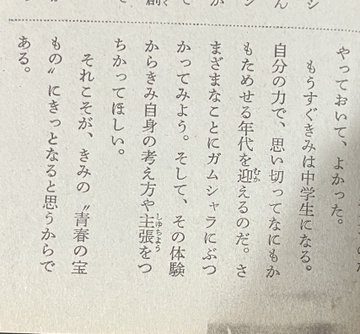 やっておいて、よかった。
もうすぐきみは中学生になる。
自分の力で、思い切ってなにもか
もためせる年代を迎えるのだ。さ
まざまなことにガムシャラにぶつ
かってみよう。そして、その体験
からきみ自身の考え方や主張をつ
ちかってほしい。
それこそが、きみの〝青春の宝
もの〟にきっとなると思うからで
ある。